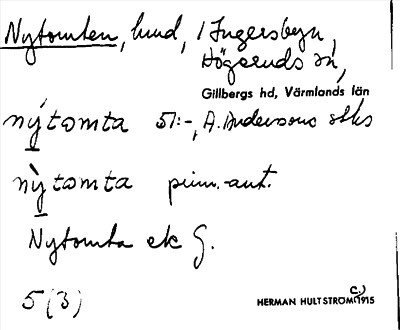 Nytomten, lund, i Ingersbyn,
Högeruds sn,
Gillbergs hd, Värmlands län
nýtomta 51:-, A. Anderssons
nỳtomta prim.-ant.
Nytomta ek G.
5(3)
HERMAN HULTSTRÖM c. 1915